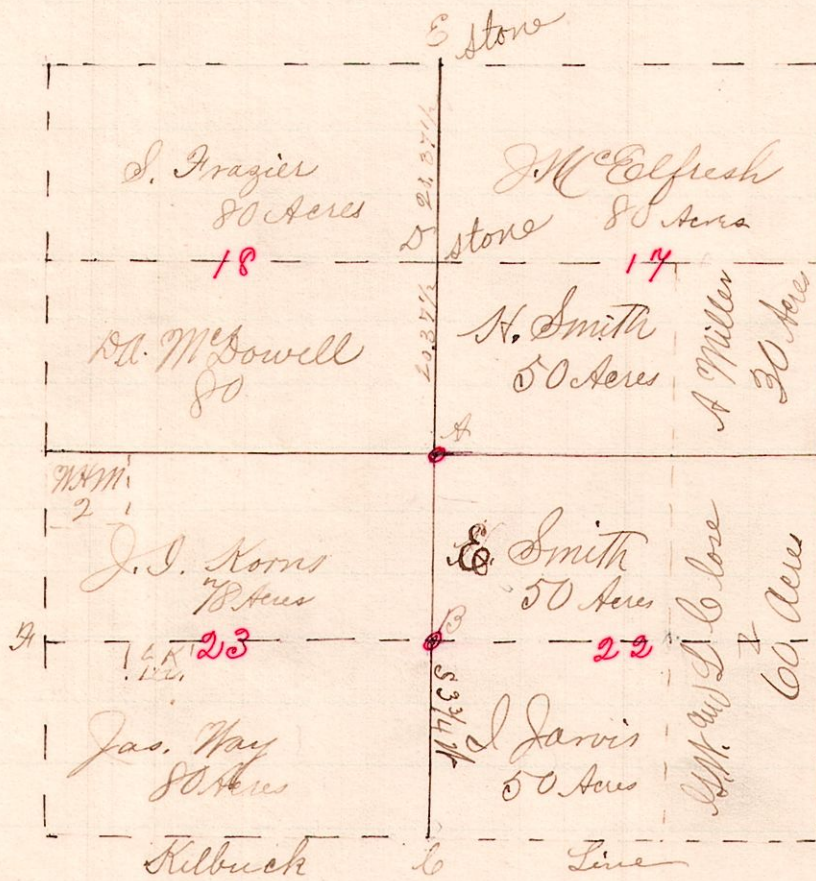 E stone
S. Frazier
80 Acres
J McElfresh
80 Acres
20.37½
D stone
18
17
D.A. McDowell
80
20.37½
H. Smith
50 Acres
A Miller
30 Acres
A
W.H.M.
2
J. I. Korns
78 Acres
E Smith
50 Acres
B
23
22
S 3¾ W
Jas. Way
80 Acres
I Jarvis
50 Acres
and L Close
60 Acres
Kilbuck C Line